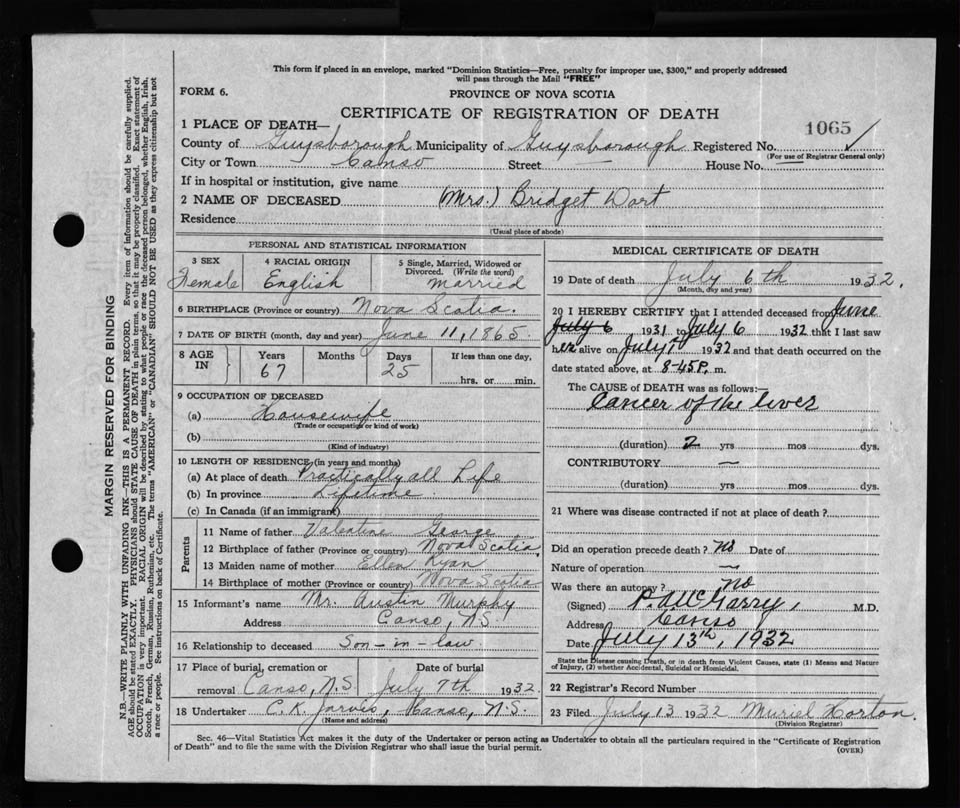 This form if placed in an envelope, marked "Dominion Statistics—Free, penalty for improper use, $300," and properly addressed
will pass through the Mail "FREE"
FORM 6.
PROVINCE OF NOVA SCOTIA
CERTIFICATE OF REGISTRATION OF DEATH
1065 ✓
1 PLACE OF DEATH—
County of Guysborough Municipality of Guysborough Registered No.
(For use of Registrar General only)
City or Town Canso Street — House No. —
If in hospital or institution, give name
2 NAME OF DECEASED (Mrs.) Bridget Dort
Residence
(Usual place of abode)
PERSONAL AND STATISTICAL INFORMATION
3 SEX 4 RACIAL ORIGIN 5 Single, Married, Widowed or
Divorced. (Write the word)
Female English married
6 BIRTHPLACE (Province or country) Nova Scotia.
7 DATE OF BIRTH (month, day and year) June 11, 1865.
8 AGE IN Years Months Days If less than one day,
67 25 hrs. or min.
9 OCCUPATION OF DECEASED
(a) Housewife
(Trade or occupation or kind of work)
(b)
(Kind of industry)
10 LENGTH OF RESIDENCE (in years and months)
(a) At place of death Practically all Life
(b) In province Lifetime.
(c) In Canada (if an immigrant)
Parents
11 Name of father Valentine George
12 Birthplace of father (Province or country) Nova Scotia
13 Maiden name of mother Ellen Ryan
14 Birthplace of mother (Province or country) Nova Scotia
15 Informant's name Mr. Austin Murphy
Address Canso, N.S.
16 Relationship to deceased Son-in-law.
17 Place of burial, cremation or Date of burial
removal Canso, N.S. July 7th 1932.
18 Undertaker C. K. Jarvis, Canso, N.S.
(Name and address)
MEDICAL CERTIFICATE OF DEATH
19 Date of death July 6th 1932.
(Month, day and year)
20 I HEREBY CERTIFY that I attended deceased from June
July 6 1931 to July 6 1932 that I last saw
her alive on July 1932 and that death occurred on the
date stated above, at 8-45 P. m.
The CAUSE of DEATH was as follows:—
Cancer of the liver
(duration) 2 yrs mos dys.
CONTRIBUTORY —
(duration) yrs. mos. dys.
21 Where was disease contracted if not at place of death?
Did an operation precede death? No Date of
Nature of operation —
Was there an autopsy? No
(Signed) P. A. McGarry, M.D.
Address Canso
Date July 13th, 1932
State the Disease causing Death, or in death from Violent Causes, state (1) Means and Nature
of Injury, (2) whether Accidental, Suicidal or Homicidal.
22 Registrar's Record Number
23 Filed July 13 1932 Muriel Horton.
(Division Registrar)
Sec. 46—Vital Statistics Act makes it the duty of the Undertaker or person acting as Undertaker to obtain all the particulars required in the "Certificate of Registration
of Death" and to file the same with the Division Registrar who shall issue the burial permit.
(OVER)
MARGIN RESERVED FOR BINDING
N.B.—WRITE PLAINLY WITH UNFADING INK—THIS IS A PERMANENT RECORD. Every item of information should be carefully supplied.
AGE should be stated EXACTLY. PHYSICIANS should STATE CAUSE OF DEATH in plain terms, so that it may be properly classified. Exact statement of
OCCUPATION is very important. RACIAL ORIGIN will be described by stating to what people or race the deceased person belonged, whether English, Irish,
Scotch, French, German, Russian, Ruthenian, etc. The terms "AMERICAN" or "CANADIAN" SHOULD NOT BE USED as they express citizenship but not
a race or people. See instructions on back of Certificate.